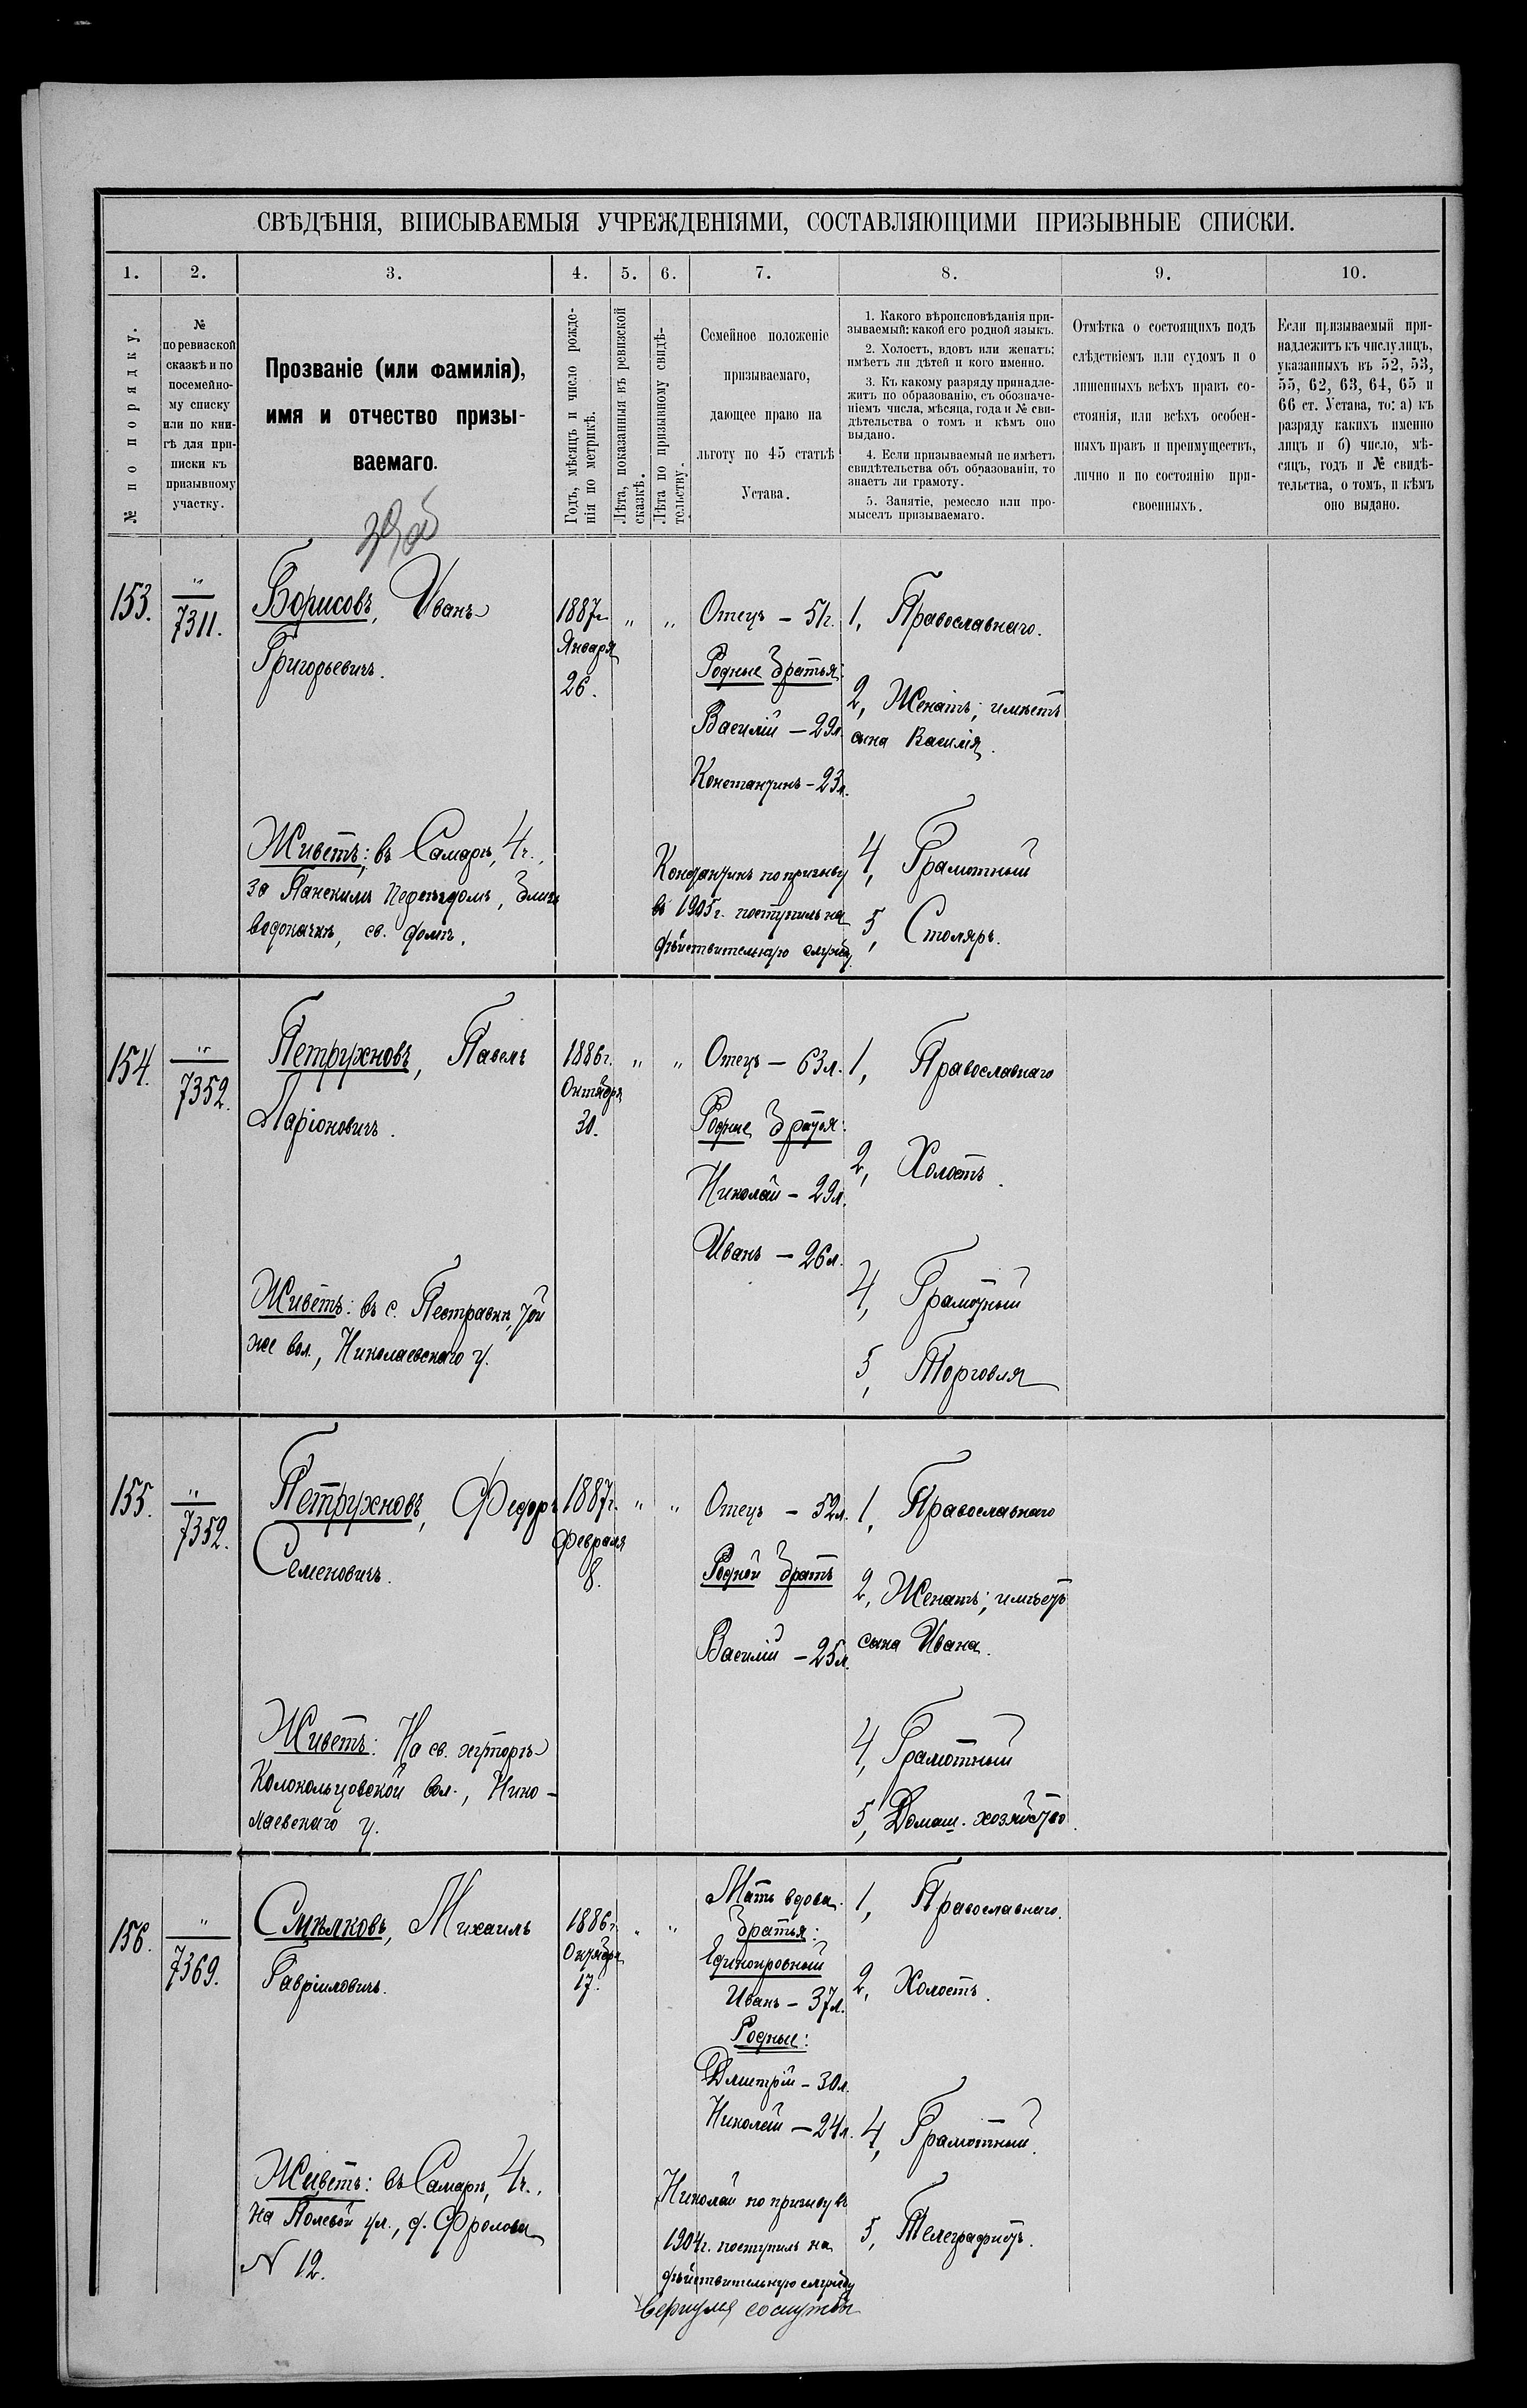 СВѢДѢНІЯ, ВПИСЫВАЕМЫЯ УЧРЕЖДЕНІЯМИ, СОСТАВЛЯЮЩИМИ ПРИЗЫВНЫЕ СПИСКИ.
1. 2. 3. 4. 5. 6. 7. 8. 9. 10.
№ по порядку.
№
по ревизской
сказкѣ и по
посемейно-
му списку
или по кни-
гѣ для при-
писки къ
призывному
участку.
Прозваніе (или фамилія),
имя и отчество призы-
ваемаго.
Годъ, мѣсяцъ и число рожде-
нія по метрикѣ.
Лѣта, показанныя въ ревизской
сказкѣ.
Лѣта по призывному свидѣ-
тельству.
Семейное положеніе
призываемаго,
дающее право на
льготу по 45 статьѣ
Устава.
1. Какого вѣроисповѣданія при-
зываемый; какой его родной языкъ.
2. Холостъ, вдовъ или женатъ;
имѣетъ ли дѣтей и кого именно.
3. Къ какому разряду принадле-
житъ по образованію, съ обозначе-
ніемъ числа, мѣсяца, года и № сви-
дѣтельства о томъ и кѣмъ оно
выдано.
4. Если призываемый не имѣетъ
свидѣтельства объ образованіи, то
знаетъ ли грамоту.
5. Занятіе, ремесло или про-
мыселъ призываемаго.
Отмѣтка о состоящихъ подъ
слѣдствіемъ или судомъ и о
лишенныхъ всѣхъ правъ со-
стоянія, или всѣхъ особен-
ныхъ правъ и преимуществъ,
лично и по состоянію при-
своенныхъ.
Если призываемый при-
надлежитъ къ числу лицъ,
указанныхъ въ 52, 53,
55, 62, 63, 64, 65 и
66 ст. Устава, то: а) къ
разряду какихъ именно
лицъ и б) число, мѣ-
сяцъ, годъ и № свидѣ-
тельства, о томъ, и кѣмъ
оно выдано.
153.
"
7311.
Борисовъ, Иванъ
Григорьевичъ.
1887г.
Января
26.
" "
Отецъ – 51г.
Родные братья:
Василій – 29л.
Константинъ – 23л.
1, Православнаго.
2, Женатъ; имѣетъ
сына Василія.
4, Грамотный
5, Столяръ.
Живетъ: въ Самарѣ, 4ч.,
за Панскимъ переѣздомъ, близь
водокачки, св. домъ.
Константинъ по призыву
въ 1905г. поступилъ на
дѣйствительную службу.
154.
"
7352.
Петрухновъ, Павелъ
Ларіоновичъ.
1886г.
Октября
30.
" "
Отецъ – 63л.
Родные братья:
Николай – 29л.
Иванъ – 26л.
1, Православнаго
2, Холостъ.
4, Грамотный
5, Торговля
Живетъ: въ с. Пестравкѣ, той
же вол., Николаевскаго у.
155.
"
7352.
Петрухновъ, Федоръ
Семеновичъ.
1887г.
Февраля
8.
" "
Отецъ – 52л.
Родной братъ
Василій – 25л.
1, Православнаго
2, Женатъ; имѣетъ
сына Ивана.
4, Грамотный
5, Домаш. хозяйство.
Живетъ: На св. хуторѣ
Колокольцовской вол., Нико-
лаевскаго у.
156.
"
7369.
Смѣлковъ, Михаилъ
Гавріиловичъ.
1886г.
Октября
17.
" "
Мать вдова.
Братья:
Единокровный
Иванъ – 37л.
Родные:
Дмитрій – 30л.
Николай – 24л.
1, Православнаго.
2, Холостъ.
4, Грамотный.
5, Телеграфистъ.
Живетъ: въ Самарѣ, 4ч.,
на Полевой ул., д. Фролова
N 12.
Николай по призыву въ
1904г. поступилъ на
дѣйствительную службу
вернулся со службы